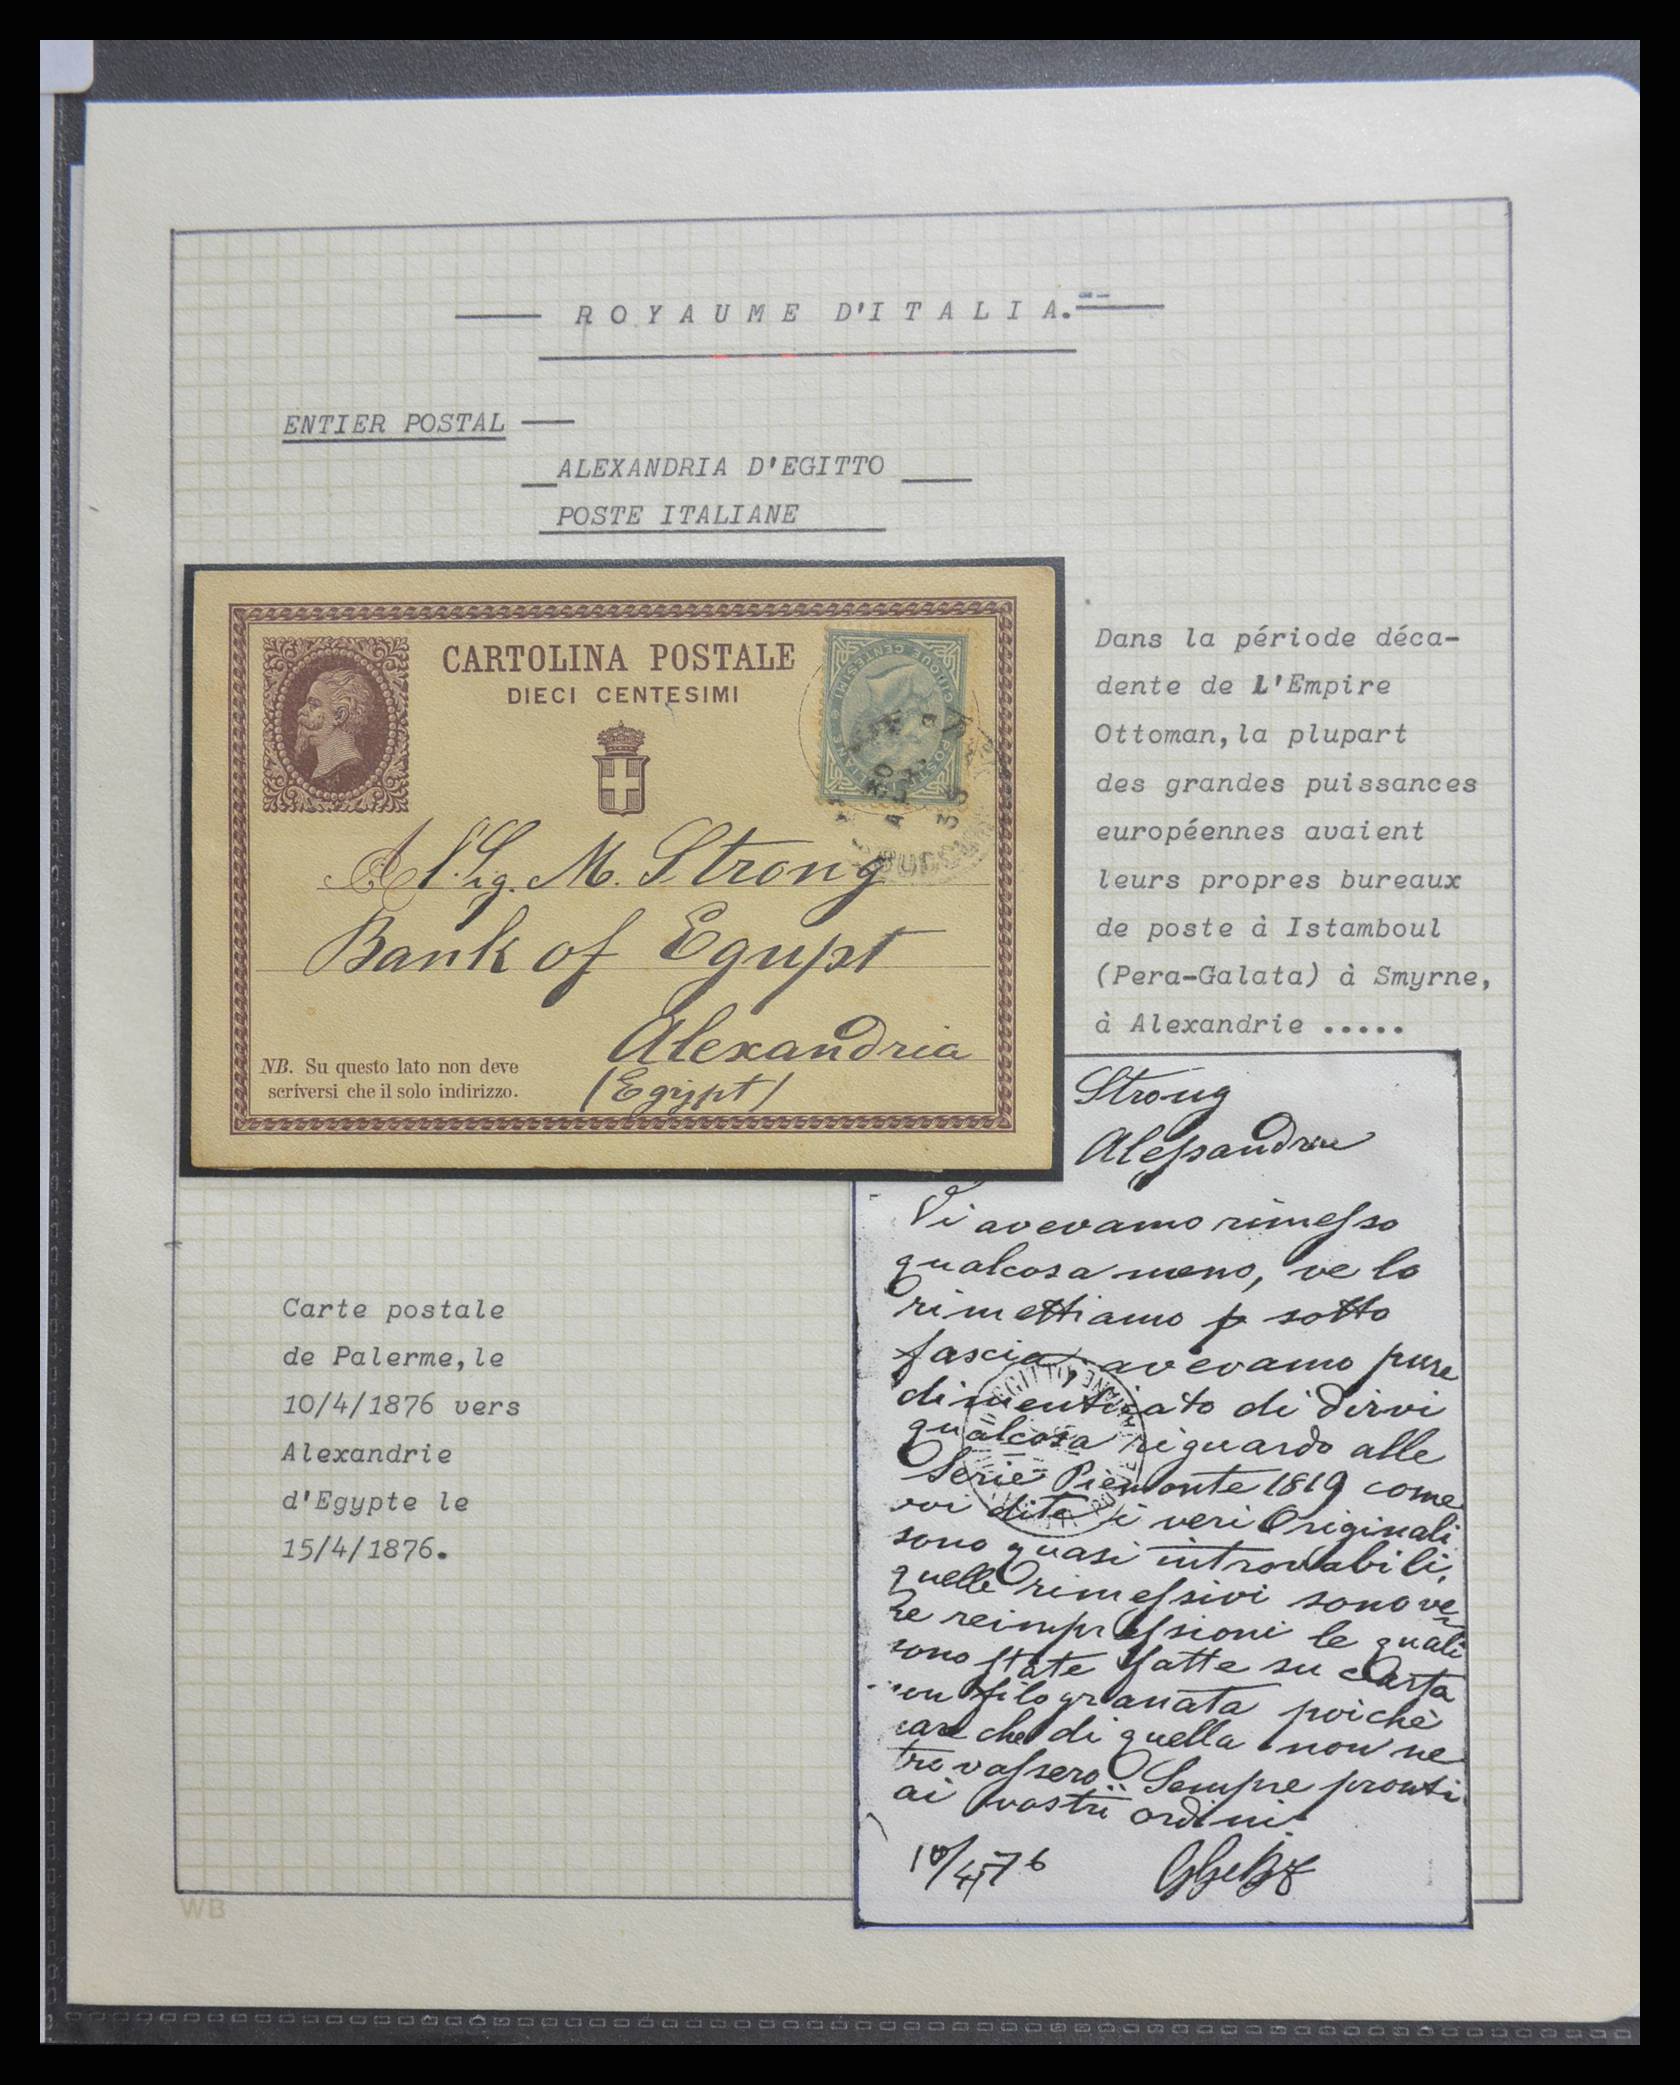 ROYAUME D'ITALIA.
ENTIER POSTAL
ALEXANDRIA D'EGITTO
POSTE ITALIANE
CARTOLINA POSTALE
DIECI CENTESIMI
CINQUE CENTESIMI
Al Sig. M. Strong
Bank of Egypt
Alexandria
(Egypt)
NB. Su questo lato non deve
scriversi che il solo indirizzo.
Dans la période déca-
dente de L'Empire
Ottoman,la plupart
des grandes puissances
européennes avaient
leurs propres bureaux
de poste à Istamboul
(Pera-Galata) à Smyrne,
à Alexandrie .....
Carte postale
de Palerme,le
10/4/1876 vers
Alexandrie
d'Egypte le
15/4/1876.
Strong
Alessandria
Vi avevamo rimesso
qualcosa meno, ve lo
rimettiamo p sotto
fascia. avevamo pure
dimenticato di dirvi
qualcosa riguardo alle
Serie Piemonte 1819 come
voi dite i veri Originali
sono quasi introvabili,
quelle rimessivi sono ve
re reimpressioni le quali
sono state fatte su carta
non filogranata poichè
che di quella non ne
trovassero. Sempre pronti
ai vostri ordini
10/4/76
WB